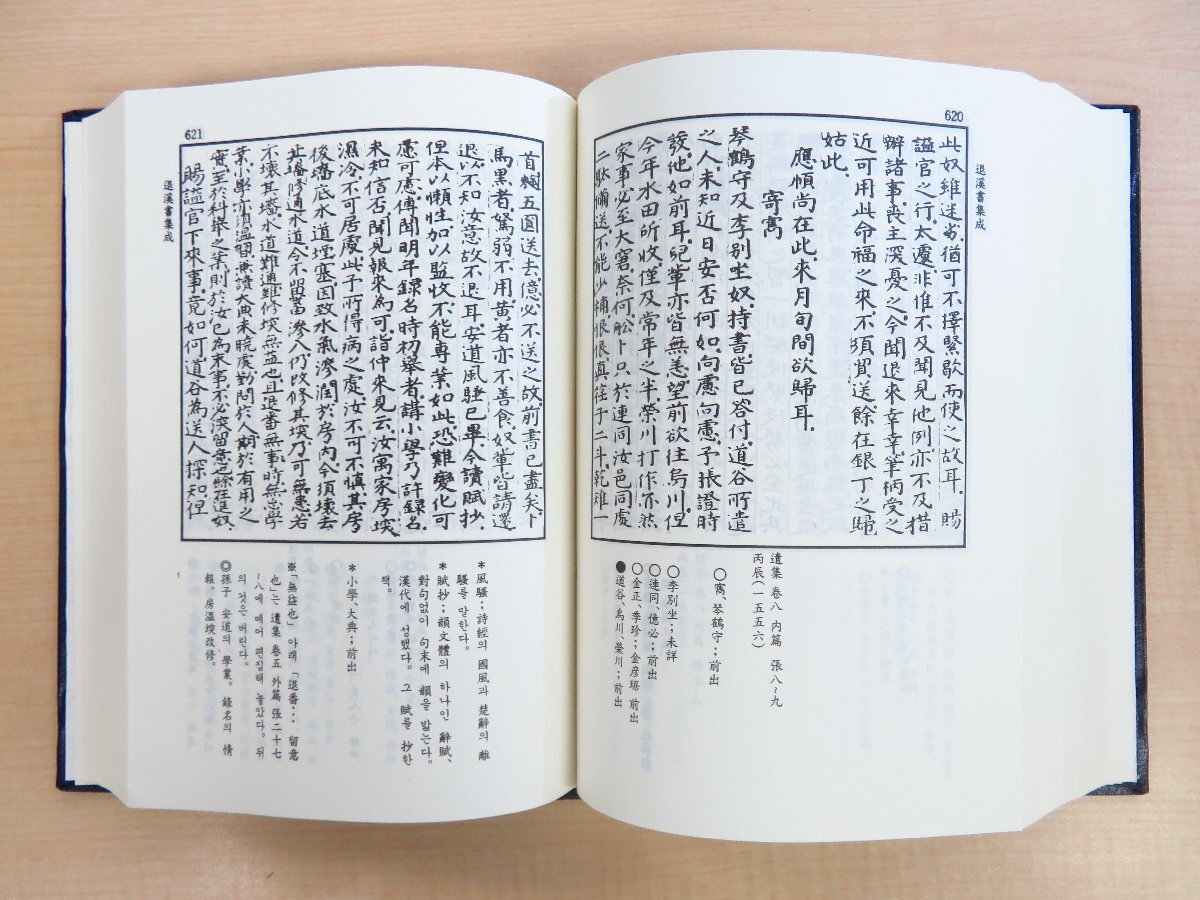 620
退溪書集成
此奴維迷劣猶可不擇緊歇而使之故耳賜
諡官之行太遽非惟不及聞見他例亦不及措
辦諸事喪主深憂之今聞退來幸幸筆柄受之
近可用此命福之來不須買送餘在銀丁之歸
姑此
應幀尚在此來月旬間欲歸耳
寄寯
琴鶴守及李別坐奴持書皆已答付道谷所遣
之人未知近日安否何如向慮向慮予張證時
發他如前耳記輩亦皆無恙望前欲往烏川但
今年水田所收僅及常年之半榮川打作亦然
家事必至大窘奈何舩卜只於連同汝邑同處
二駄彌送不能少補恨恨眞荏子二斗乾雉一
遺集 卷八 內篇 張八~九
丙辰(一五五六)
○寯、琴鶴守;前出
○李別坐;未詳
○連同、億必;前出
○金正、李珍;金彦琚 前出
●道谷、烏川、榮川;前出
621
退溪書集成
首 五圓送去億必不送之故前書已盡矣卜
馬黑者駑弱不用黃者亦不善食奴輩皆請還
退以不知汝意故不退耳安道風騷已畢今讀賦抄
但本以懶性加以監牧不能專業如此恐難變化可
慮可慮傳聞明年錄名時初擧者講小學乃許錄名
未知信否聞見報來爲可諧仲來見云汝寓家房堗
濕冷不可居處此予所得病之處汝不可不愼其房
後 底水道堙塞因致水氣滲潤於房內今須壞去
其 修通水道令不留蓄滲入仍改修其堗乃可無患若
不壞其 水道難通雖修堗無益也且退番無事時無
業小學亦須溫習兼讀大典未曉處對問於人 於有用之
實至於科擧之業則於汝已爲末事不必
賜諡官下來事竟如何道谷爲送人探知但
*風騷;詩經의 國風과 楚辭의 離
騷를 말한다.
*賦抄;韻文體의 하나인 辭賦、
對句없이 句末에 韻을 밟는다.
漢代에 성했다. 그 賦를 抄한
책.
*小學、大典;前出
※「無益也」 아래 「退番… 留意
也」는 遺集 卷五 外篇 張二十七
~八에 떼어 편집해 놓았다. 뒤
의 것은 버린다.
◎孫子 安道의 學業。錄名의 情
報。房溫堗改修。